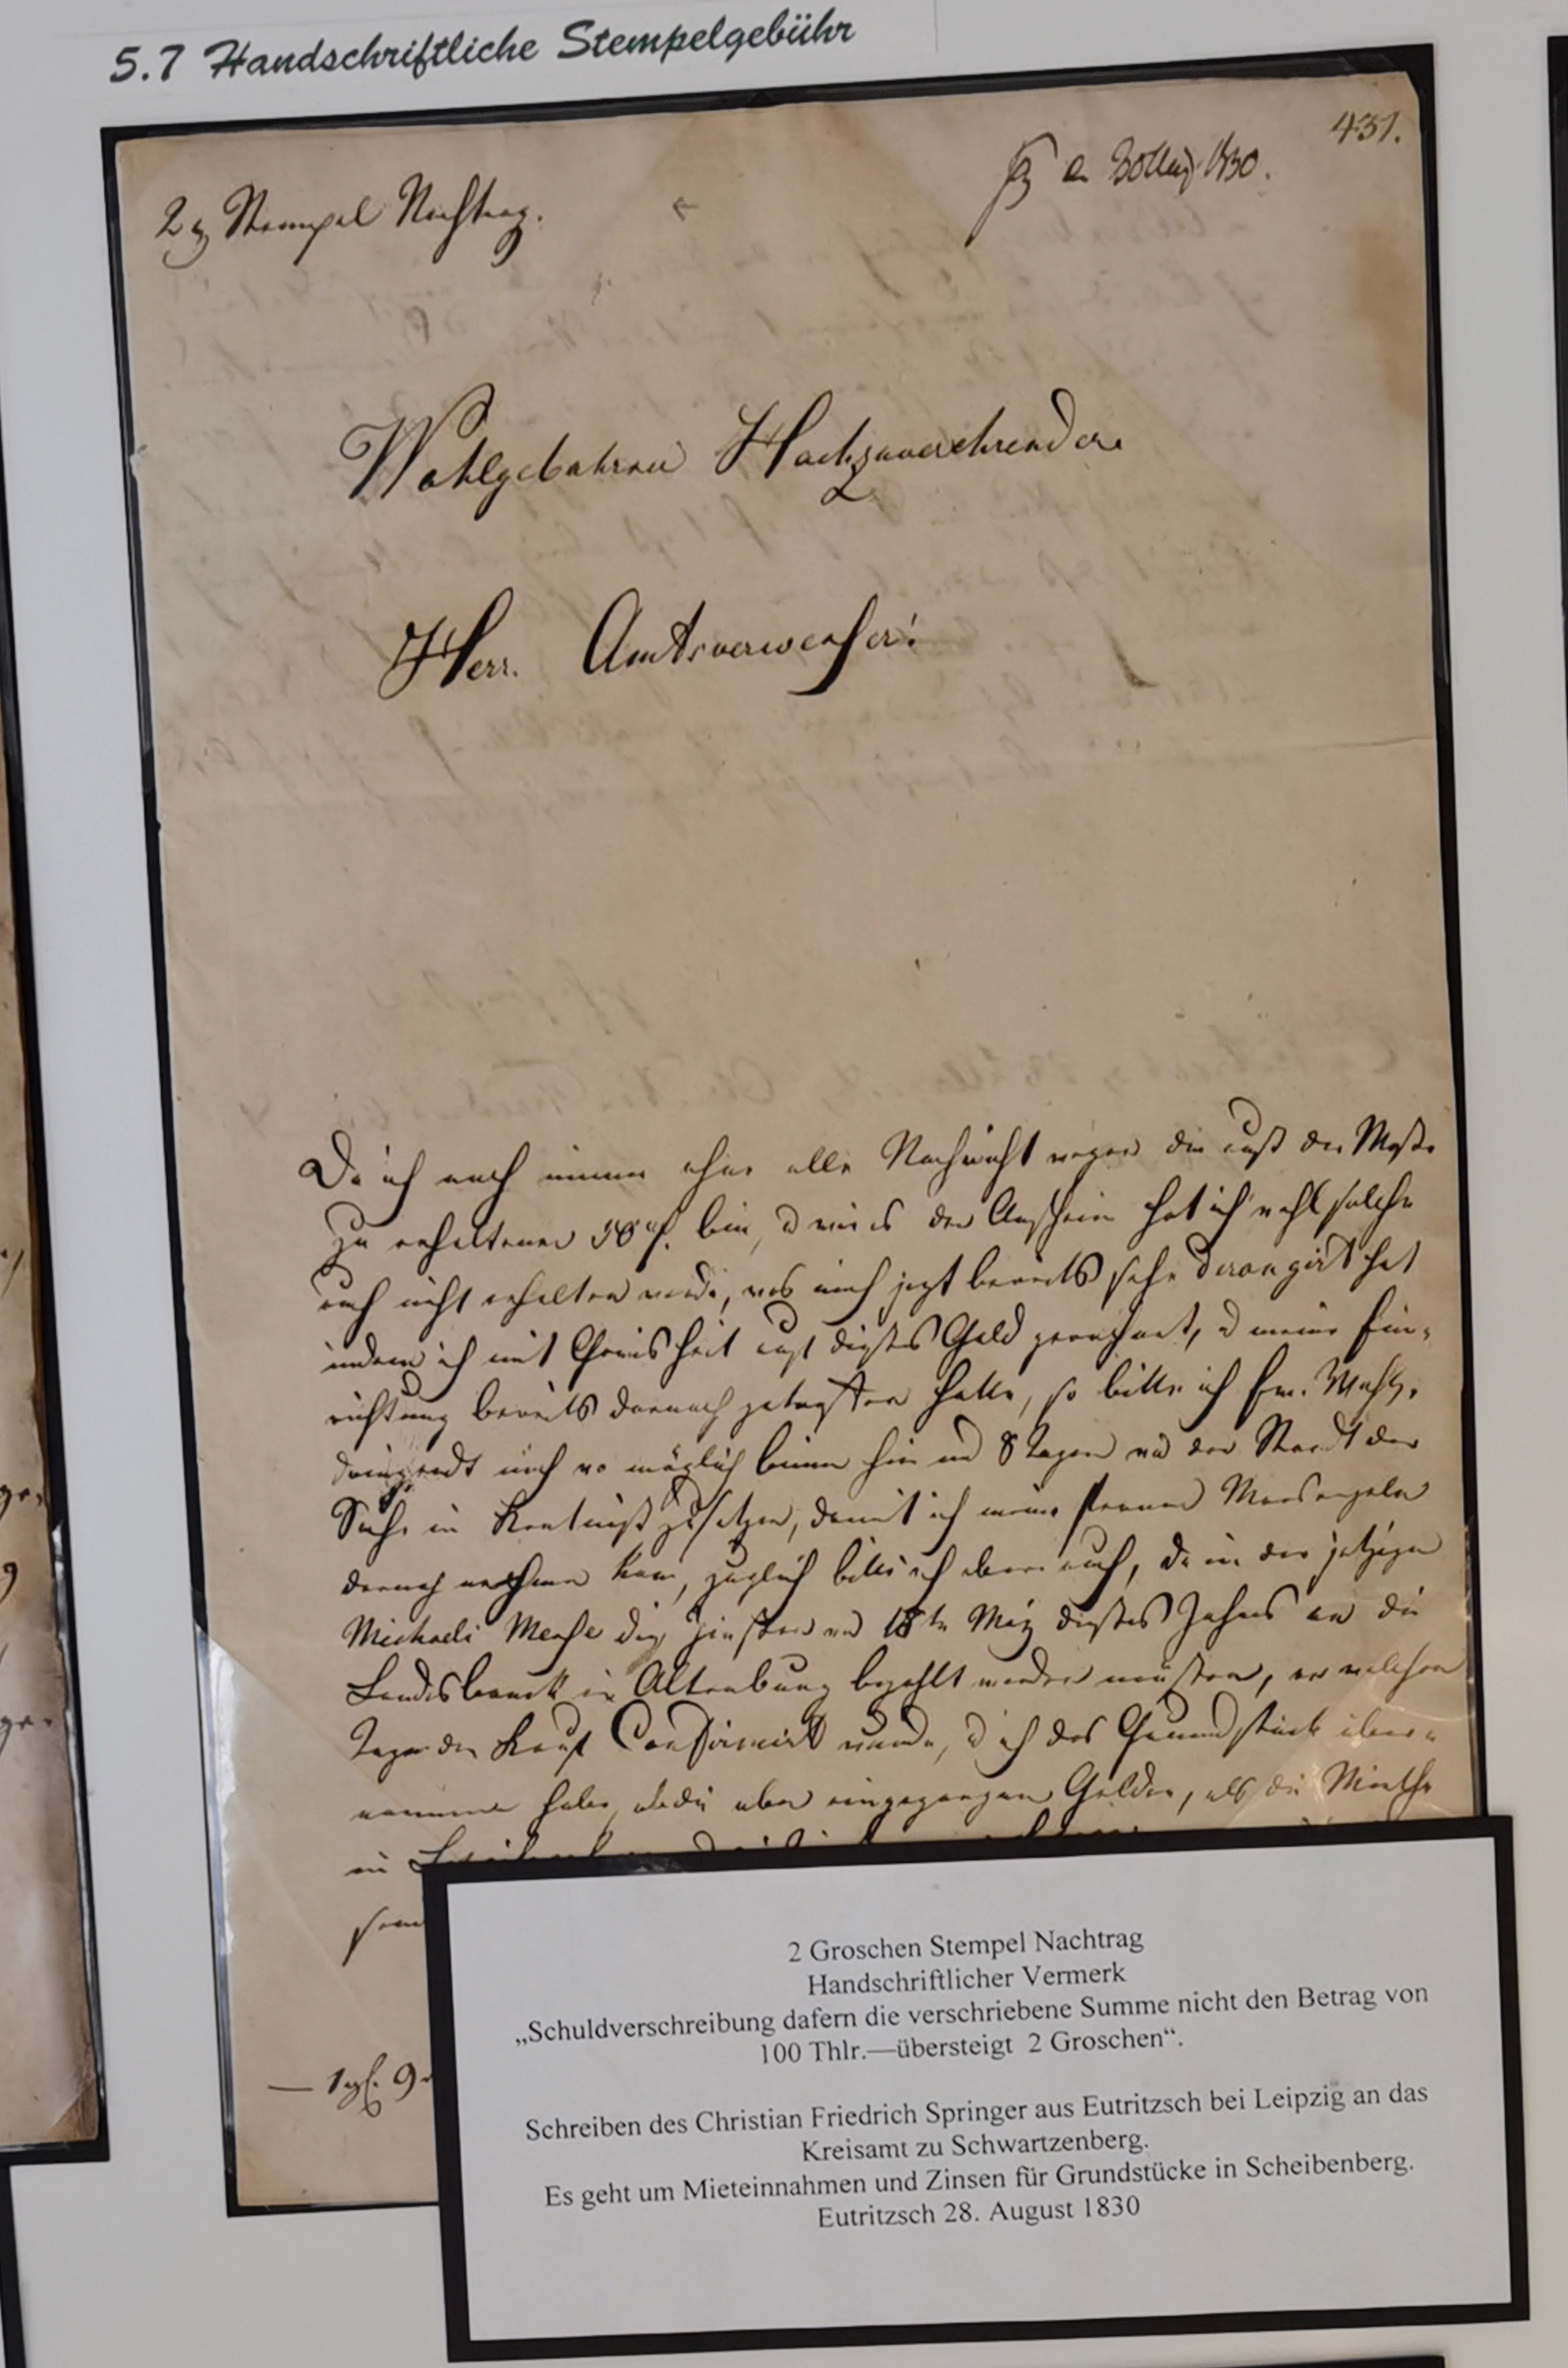 5.7 Handschriftliche Stempelgebühr
431.
2 g Stempel Nachtrag.
1830.
Wohlgebohrner Hochzuverehrender
Herr. Amtsverweser!
Da ich noch immer ohne alle Nachricht wegen die auf der Messe
zu erhaltenen 50 bin, u wie es den Anschein hat ich wohl solche
auch nicht erhalten werde, was mich jezt bereits sehr derangirt hat
indem ich mit Gewisheit auf dieses Geld gerechnet, u meine Ein-
richtung bereits darnach getroffen hatte, so bitte ich Ew. Wohlg.
dringendt mich wo möglich binnen hier und 8 Tagen von den Standt der
Sache in Kentniß zu setzen, damit ich meine fernern Maasregeln
darnach nehmen kan, zugleich bitte ich aber auch, da in der jetzigen
Michaeli Messe die Zinsen von 18tn May dieses Jahres an die
Landesbank in Altenburg bezahlt werden müssen, an welchen
Tage der Kauf Confirmirt wurde, u ich das Grundstück über-
nommen habe, die aber eingegangen Gelder, als die Miethe
in
— 1 9
2 Groschen Stempel Nachtrag
Handschriftlicher Vermerk
„Schuldverschreibung dafern die verschriebene Summe nicht den Betrag von
100 Thlr.—übersteigt 2 Groschen“.
Schreiben des Christian Friedrich Springer aus Eutritzsch bei Leipzig an das
Kreisamt zu Schwartzenberg.
Es geht um Mieteinnahmen und Zinsen für Grundstücke in Scheibenberg.
Eutritzsch 28. August 1830